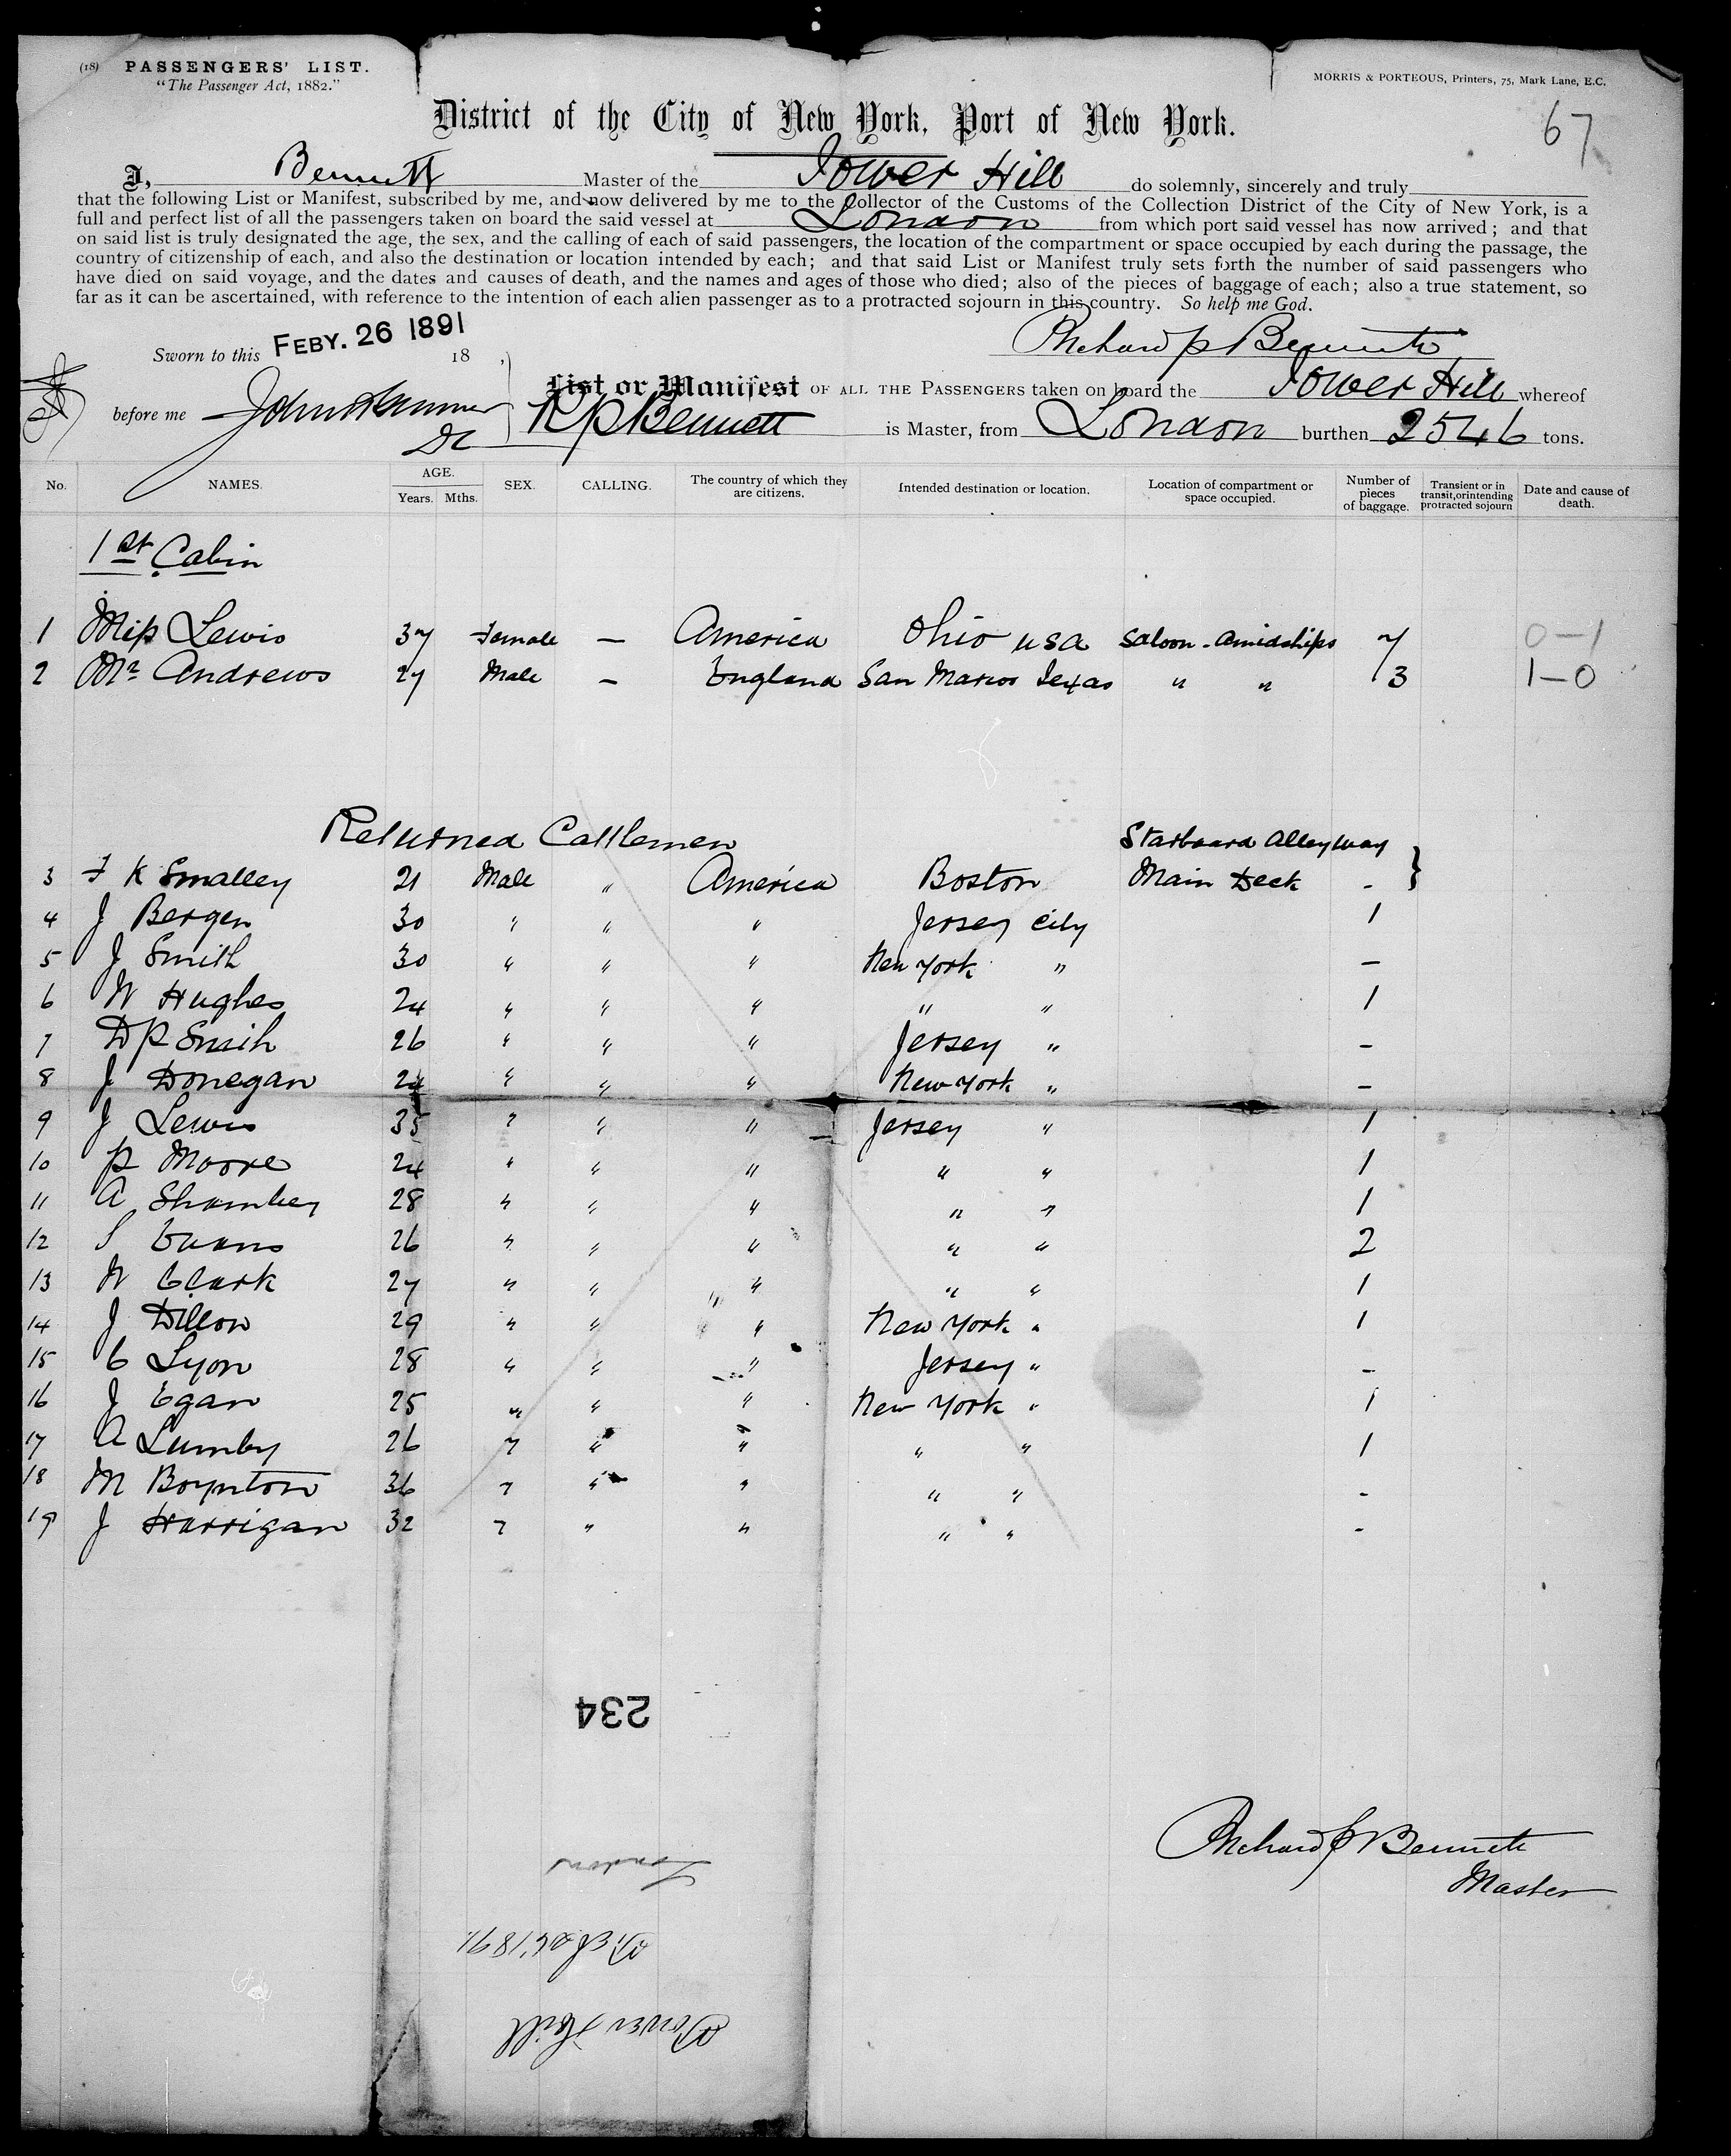 (18) PASSENGERS' LIST.
"The Passenger Act, 1882."
MORRIS & PORTEOUS, Printers, 75, Mark Lane, E.C.
67
District of the City of New York, Port of New York.
I, Bennett Master of the Tower Hill do solemnly, sincerely and truly
that the following List or Manifest, subscribed by me, and now delivered by me to the Collector of the Customs of the Collection District of the City of New York, is a
full and perfect list of all the passengers taken on board the said vessel at London from which port said vessel has now arrived; and that
on said list is truly designated the age, the sex, and the calling of each of said passengers, the location of the compartment or space occupied by each during the passage, the
country of citizenship of each, and also the destination or location intended by each; and that said List or Manifest truly sets forth the number of said passengers who
have died on said voyage, and the dates and causes of death, and the names and ages of those who died; also of the pieces of baggage of each; also a true statement, so
far as it can be ascertained, with reference to the intention of each alien passenger as to a protracted sojourn in this country. So help me God.
Richard P Bennett
Sworn to this FEBY. 26 1891 18 ,
List or Manifest OF ALL THE PASSENGERS taken on board the Tower Hill whereof
before me John
R P Bennett is Master, from London burthen 2546 tons.
No. NAMES. AGE. Years. Mths. SEX. CALLING. The country of which they are citizens. Intended destination or location. Location of compartment or space occupied. Number of pieces of baggage. Transient or in transit, or intending protracted sojourn Date and cause of death.
1st Cabin
1 Miss Lewis 37 Female — America Ohio USA Saloon - Amidships 7 0—1
2 Mr Andrews 27 Male — England San Marcos Texas " " 3 1—0
Returned Cattlemen Starboard Alleyway
3 F K Smalley 21 Male " America Boston Main Deck - }
4 J Bergen 30 " " " Jersey City 1
5 J Smith 30 " " " New York " —
6 W Hughes 24 " " " " " 1
7 D P Smith 26 " " " Jersey " -
8 J Donegan 24 " " " New York " -
9 J Lewis 35 " " " Jersey " 1
10 P Moore 24 " " " " " 1
11 A Shambey 28 " " " " " 1
12 S Evans 26 " " " " " 2
13 W Clark 27 " " " " " 1
14 J Dillon 29 " " " New York " 1
15 C Lyon 28 " " " Jersey " -
16 J Egan 25 " " " New York " 1
17 A Lumby 26 " " " " " 1
18 M Boynton 36 " " " " " -
19 J Harrigan 32 " " " " " -
234
Richard P Bennett
Master
London
Feb 26 1891
Tower Hill